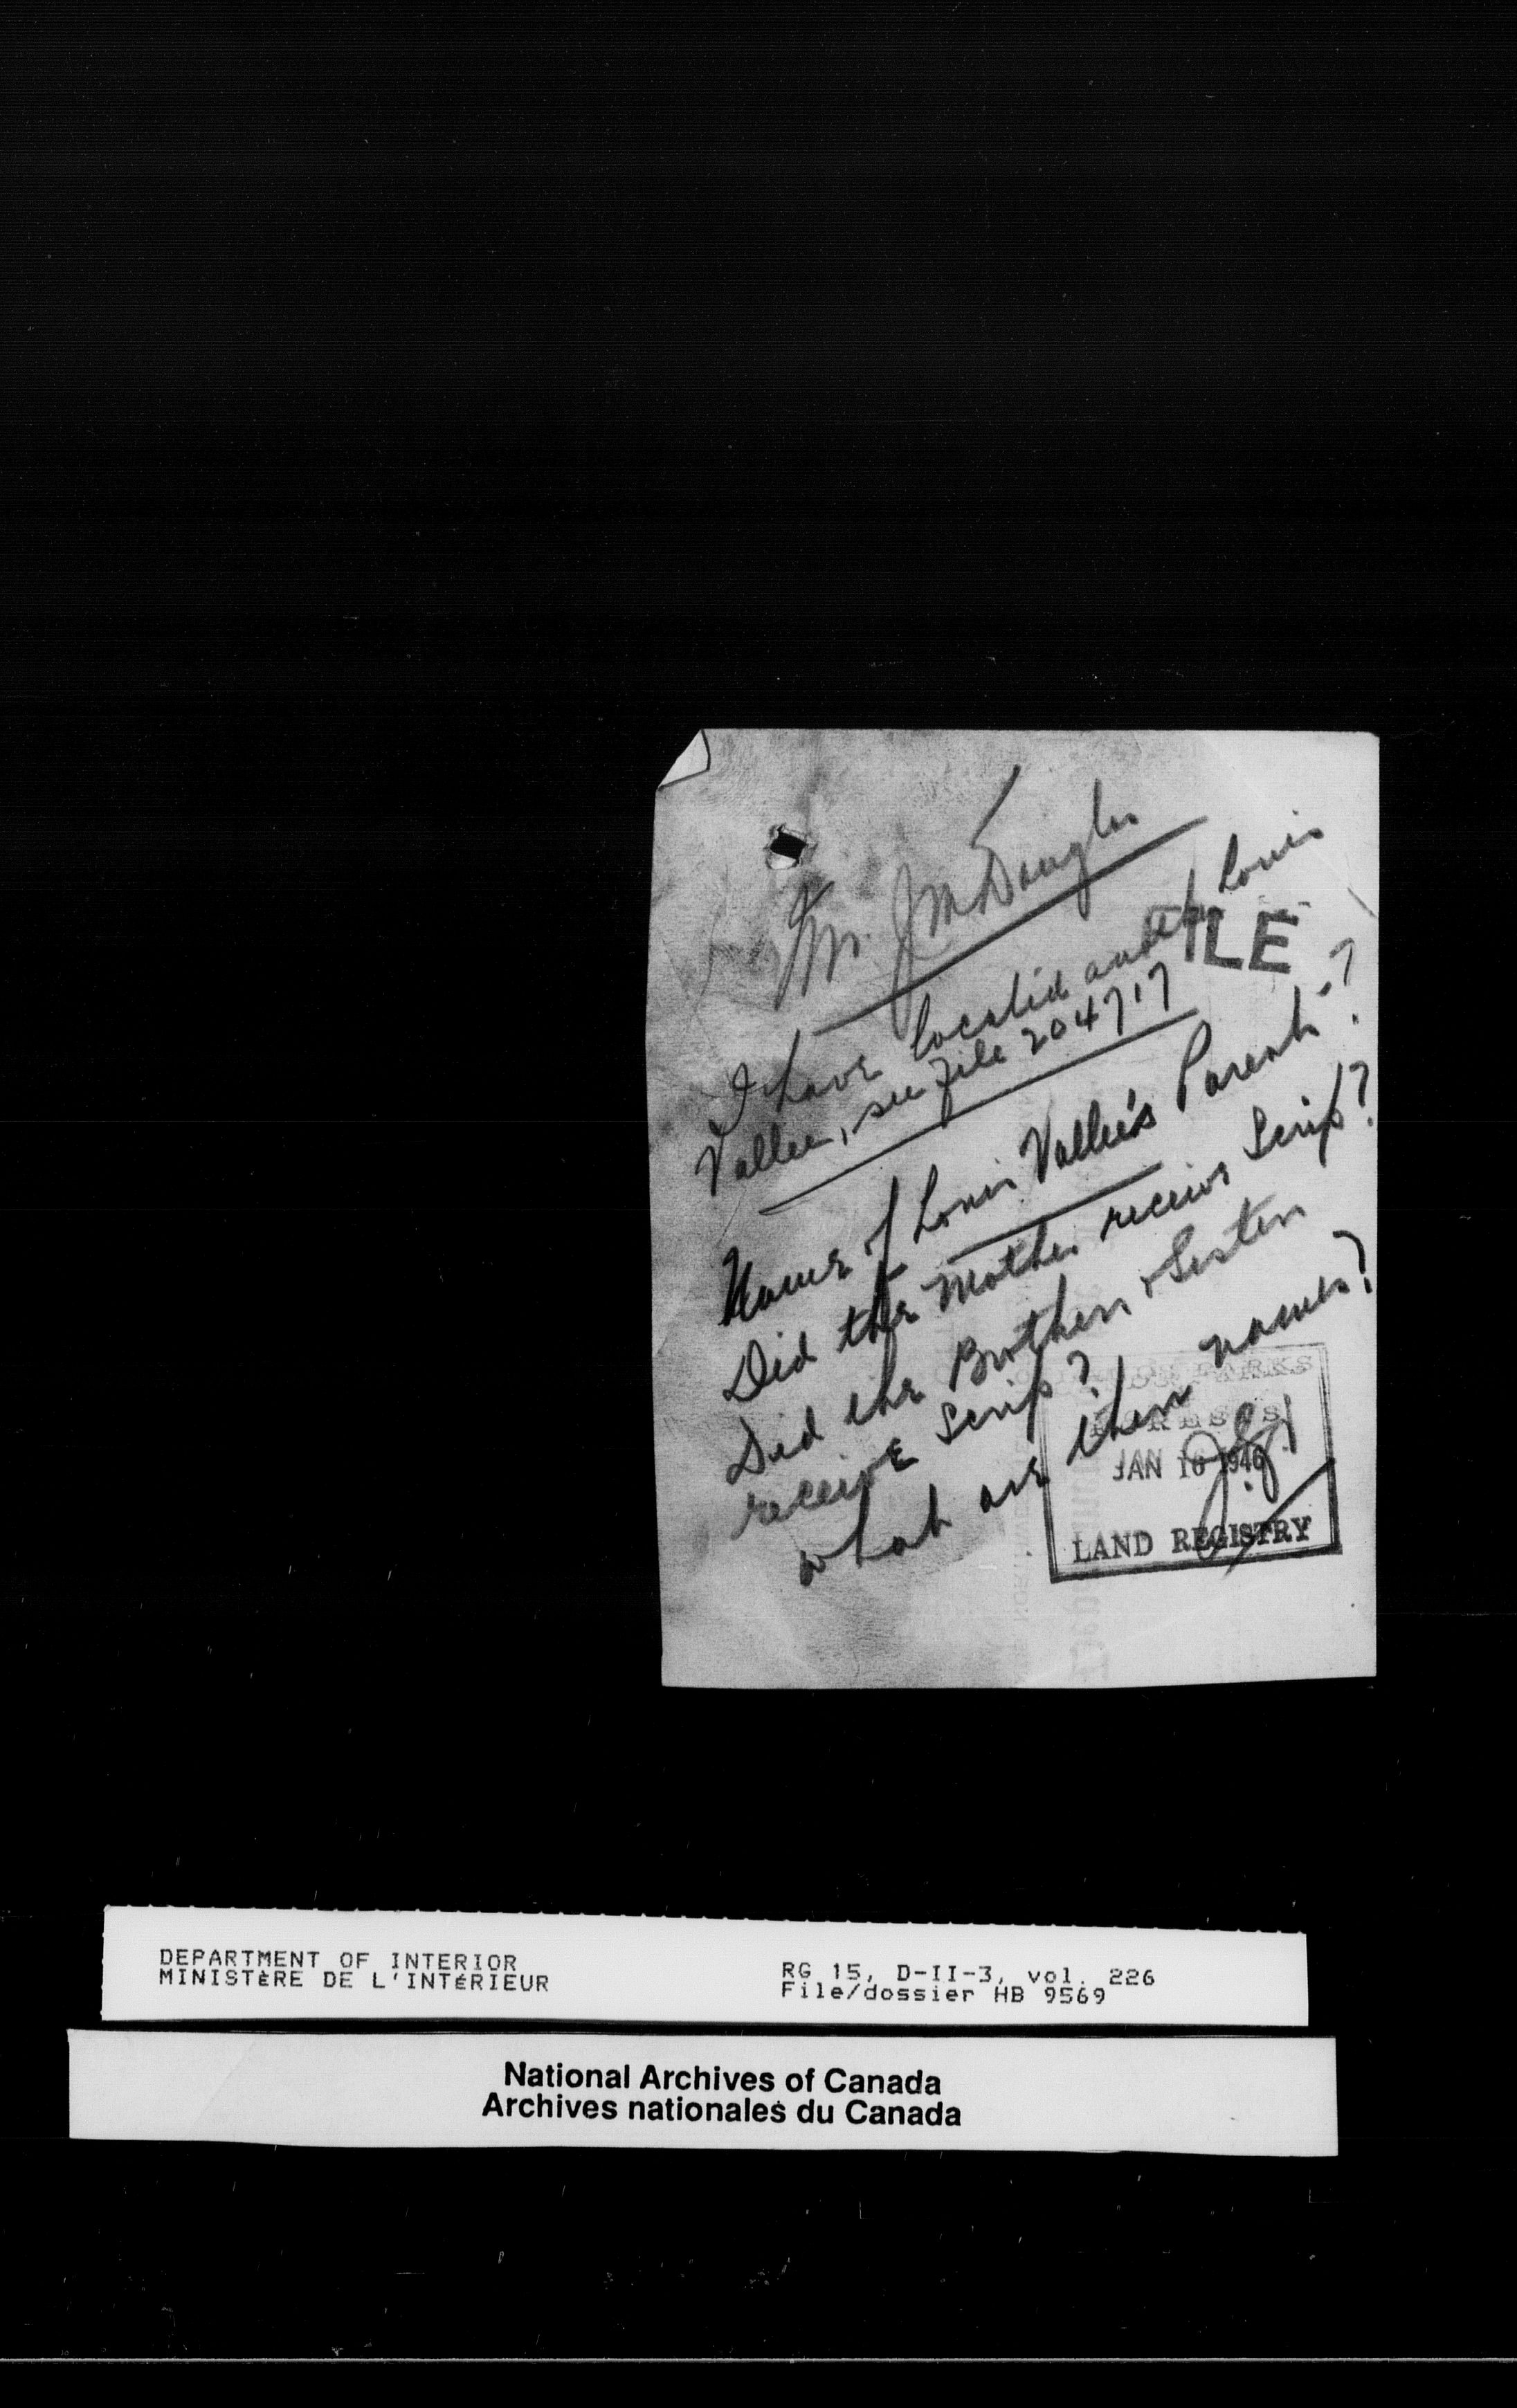 Mr. J McDougler
FILE
I have located another Louis
Vallee, see file 204717
Name of Louis Vallee's Parents?
Did the Mother receive Scrip?
Did the Brothers & Sisters
receive Scrip?
what are their names?
PARKS
FORESTS
JAN 16 1946
LAND REGISTRY
DEPARTMENT OF INTERIOR
MINISTÈRE DE L'INTÉRIEUR
RG 15, D-II-3, vol. 226
File/dossier HB 9569
National Archives of Canada
Archives nationales du Canada